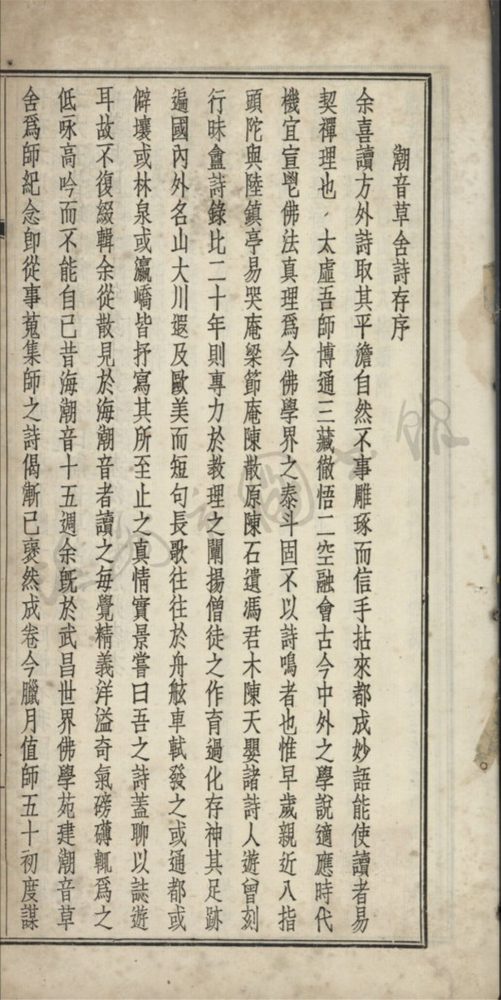 潮音草舍詩存序
余喜讀方外詩取其平澹自然不事雕琢而信手拈來都成妙語能使讀者易
契禪理也太虛吾師博通三藏徹悟二空融會古今中外之學說適應時代
機宜宣鬯佛法真理爲今佛學界之泰斗固不以詩鳴者也惟早歲親近八指
頭陀與陸鎮亭易哭庵梁節庵陳散原陳石遺馮君木陳天嬰諸詩人遊曾刻
行昧盦詩錄比二十年則專力於教理之闡揚僧徒之作育過化存神其足跡
遍國內外名山大川遐及歐美而短句長歌往往於舟舷車軾發之或通都或
僻壤或林泉或瀛嶠皆抒寫其所至止之真情實景嘗曰吾之詩蓋聊以誌遊
耳故不復綴輯余從散見於海潮音者讀之每覺精義洋溢奇氣磅礴輒爲之
低咏高吟而不能自已昔海潮音十五週余既於武昌世界佛學苑建潮音草
舍爲師紀念卽從事蒐集師之詩偈漸已裒然成卷今臘月值師五十初度謀